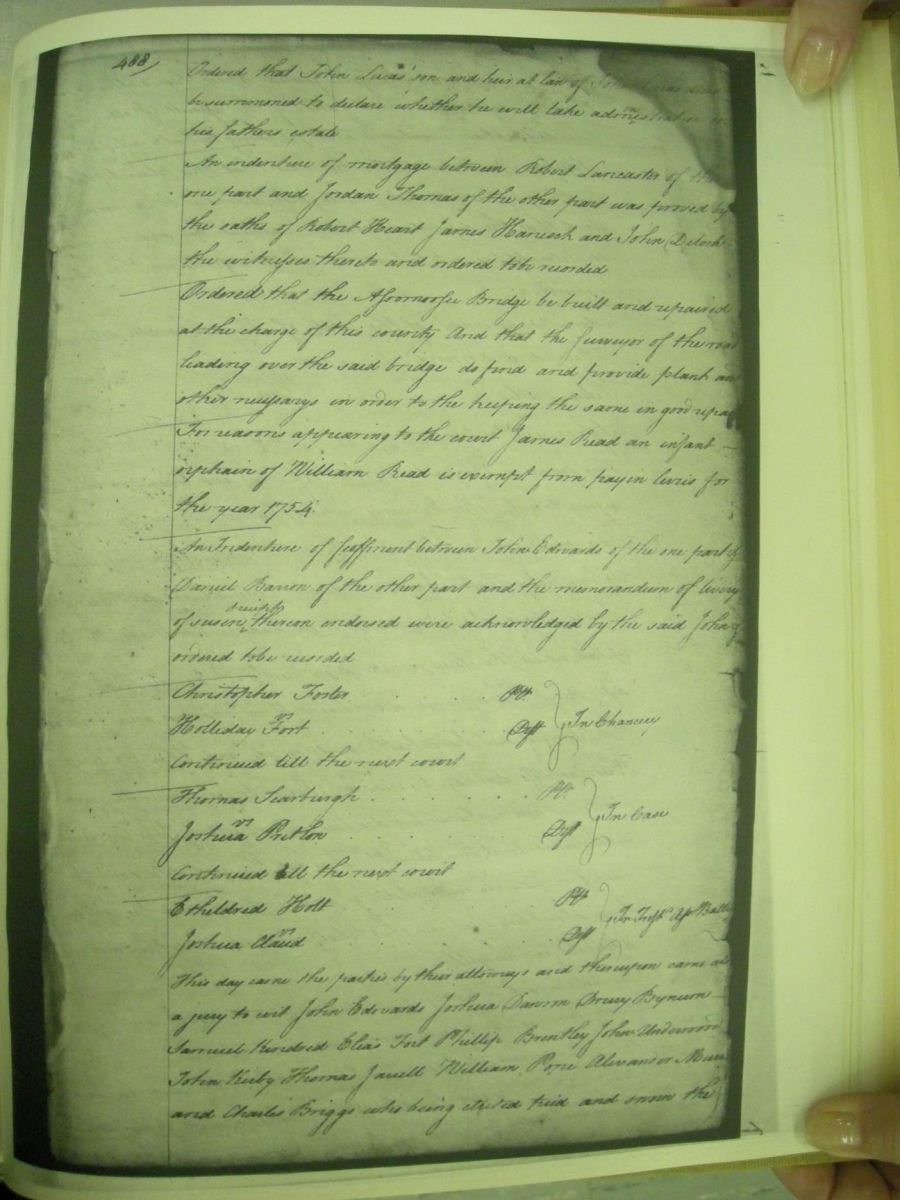 488
Ordered that John Lucas son and heir at law of John Lucas
be summoned to declare whether he will take administration on
his fathers estate
An indenture of mortgage between Robert Lancaster of the
one part and Jordan Thomas of the other part was proved by
the oaths of Robert Heart James Hancock and John Deloch
the witnesses thereto and ordered tobe recorded
Ordered that the Assamoosee Bridge be built and repaired
at the charge of this county And that the surveyor of the road
leading over the said bridge do find and provide plank and
other necessarys in order to the keeping the same in good repair
For reasons appearing to the court James Read an infant
orphain of William Read is exempt from payin levies for
the year 1754
An Indenture of feoffment between John Edwards of the one part &
Daniel Barron of the other part and the memorandum of livery
of seisen & receipt thereon endorsed were acknowledged by the said John &
ordered tobe recorded
Christopher Foster Plt
vs In Chancey
Holliday Fort Deft
Continued till the next court
Thomas Scarburgh Plt
vs In Case
Joshua Pretlon Deft
Continued till the next court
Etheldred Holt Plt
vs In Tresps Asst Batt
Joshua Claud Deft
This day came the parties by their attorneys and thereupon came also
a jury to wit John Edwards Joshua Dawson Drury Bynum
Samuel Kindred Elias Fort Phillip Brantley John Underwood
John Kirby Thomas Jarrell William Pope Alexander
and Charles Briggs who being elected tried and sworn the